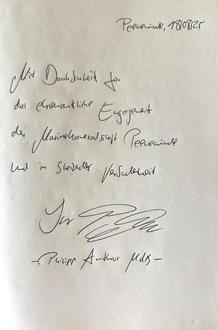 Peenemünde, 18/08/25
Mit Dankbarkeit für
das ehrenamtliche Engagement
der Marinekameradschaft Peenemünde
und in steter Verbundenheit
Ihr
- Philipp Amthor MdB -